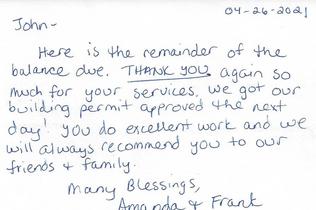 04-26-2021
John-
Here is the remainder of the
balance due. THANK YOU again so
much for your services, we got our
building permit approved the next
day! you do excellent work and we
will always recommend you to our
friends & family.
Many Blessings,
Amanda & Frank